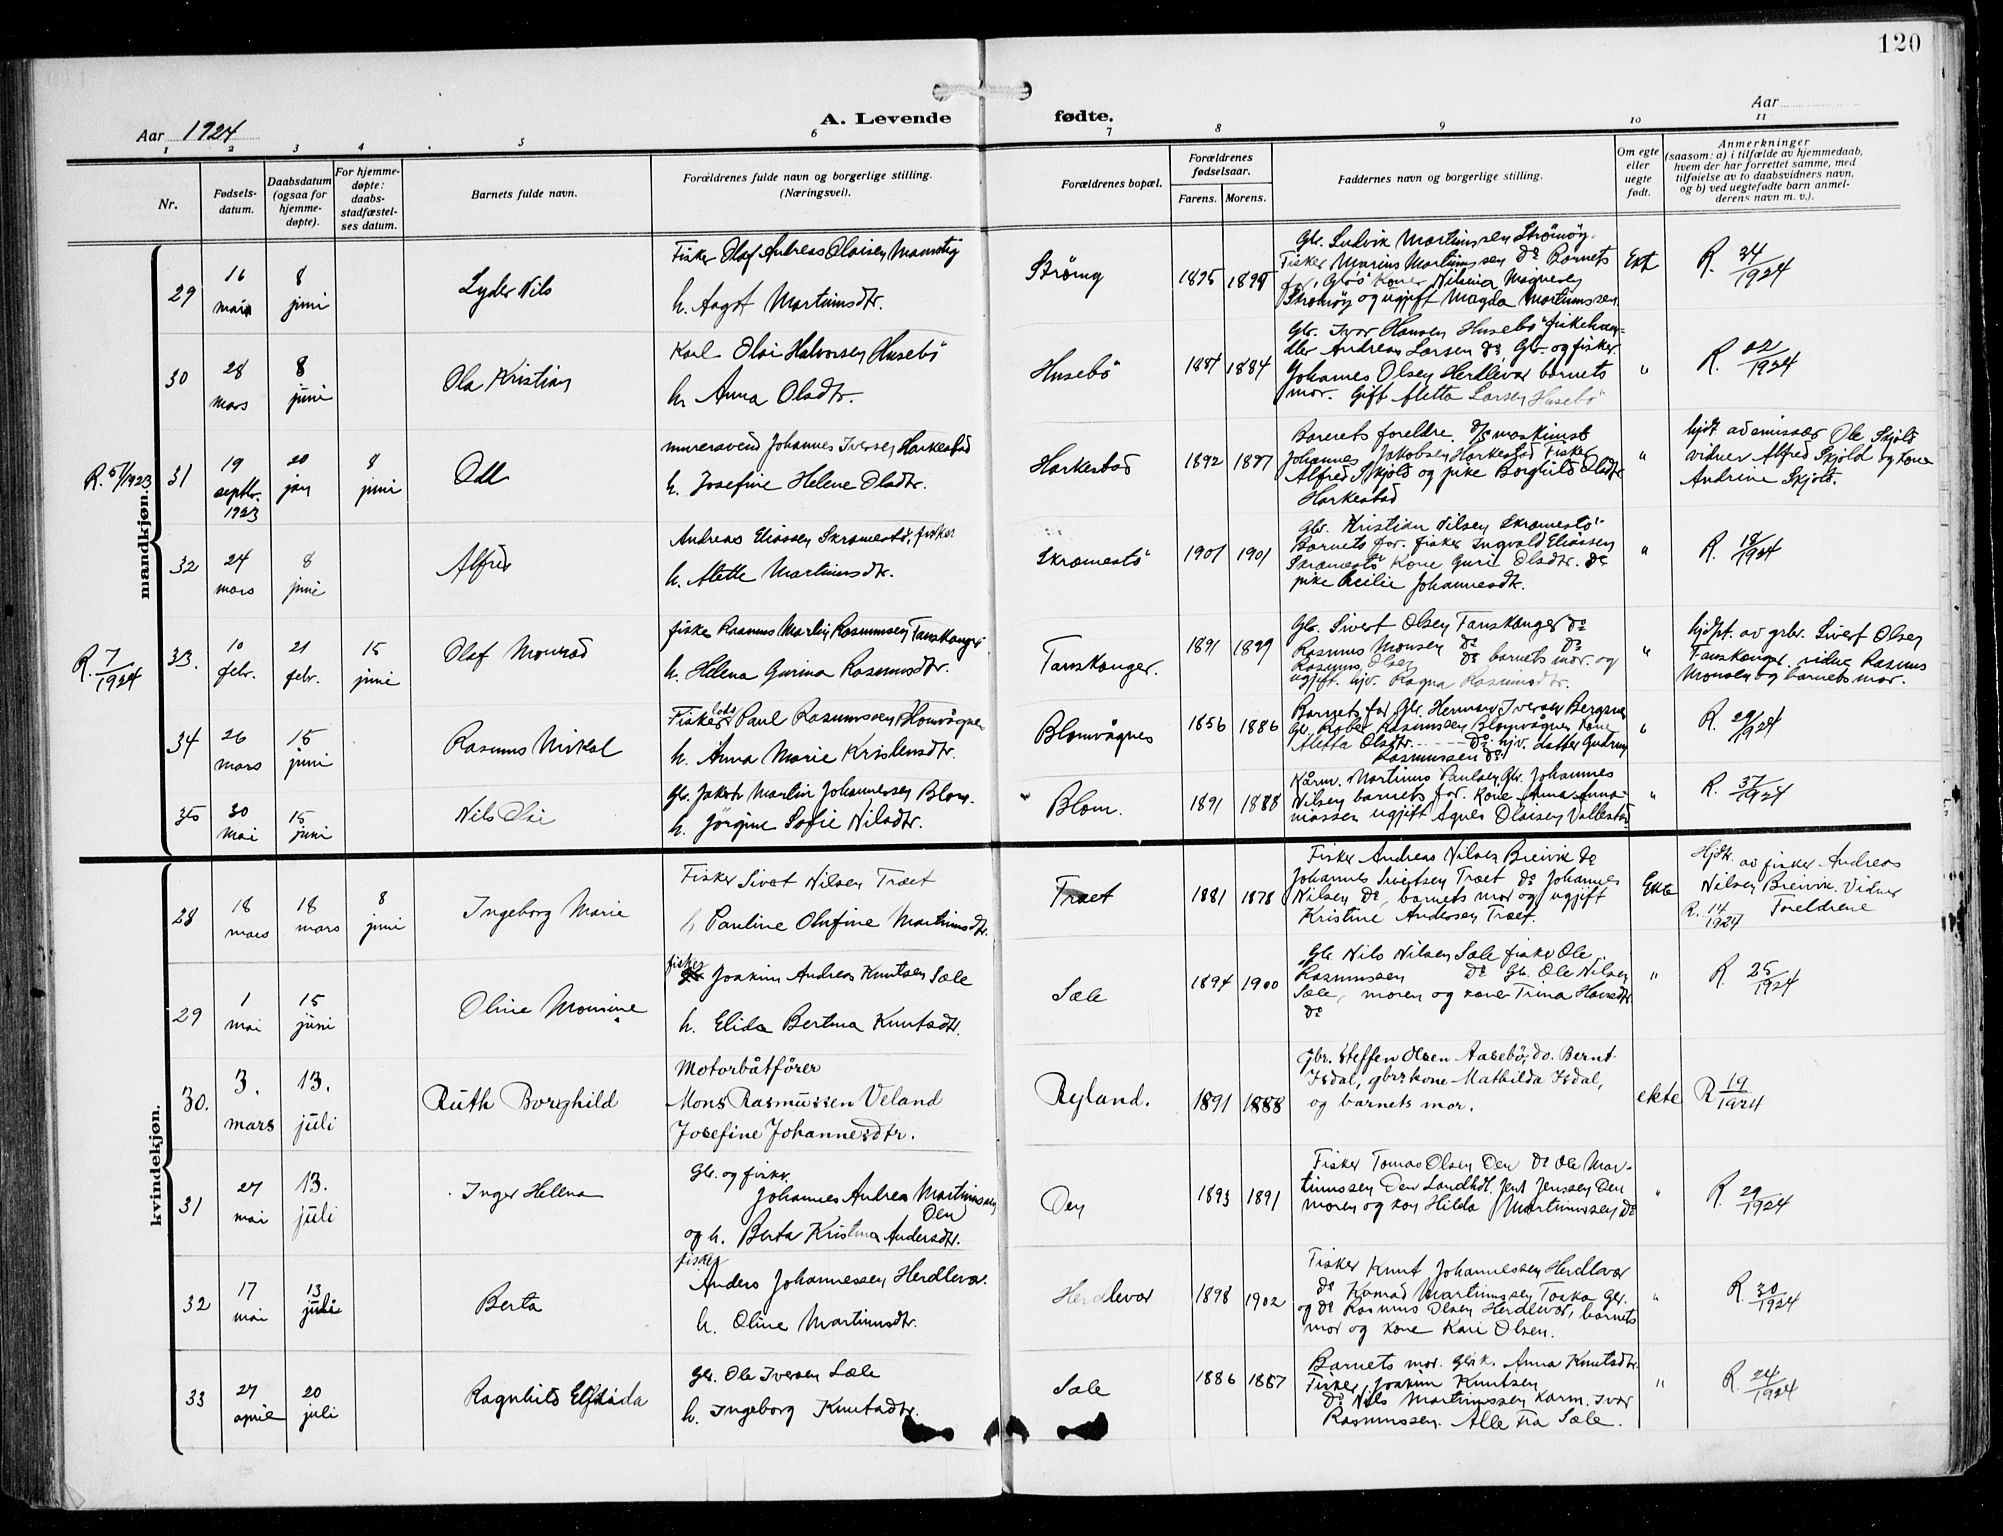 120
Aar 1924
A. Levende fødte.
Aar
1 2 3 4 5 6 7 8 9 10 11
Nr.
Fødsels-
datum.
Daabsdatum
(ogsaa for
hjemme-
døpte).
For hjemme-
døpte:
daabs-
stadfæstel-
ses datum.
Barnets fulde navn.
Forældrenes fulde navn og borgerlige stilling.
(Næringsvei).
Forældrenes bopæl.
Forældrenes
fødselsaar.
Farens. Morens.
Faddernes navn og borgerlige stilling.
Om egte
eller
uegte
født.
Anmerkninger
(saasom: a) i tilfælde av hjemmedaab,
hvem der har forrettet samme, med
tilføielse av to daabsvidners navn,
og b) ved uegtefødte barn anmel-
derens navn m. v.).
mandkjøn.
29
16 mai
8 juni
Lyder Nils
Fisker Olaf Andreas Olaisen
h. Martinusdtr.
1895
Gbr. Ludvik Martinussen Strömöy.
Fisker Marius Martinussen Do Barnets
Strömöy og ugift Magda Martinussen
R. 34/1924
30
28 mars
8 juni
Ola Kristian
Karl Olai Halvorsen Husebö
h. Anna Olsdtr.
Husebö
1884
Gbr. Ivar Hansen Husebö fiskehan-
dler Andreas Larsen do, Gbr. og fisker
Johannes Olsen Herdlevær barnets
mor. Gift Aletta Larsen Husebö
"
R. 22/1924
R. 51/1923
31
19 septbr. 1923
20 jan
8 juni
Odd
murersvend Johannes Iversen Harkestad
h. Josefine Helene Olsdtr.
Harkestad
1892
Barnets foreldre. D/S maskinist
Johannes Jakobsen Harkestad Fisker
Alfred Skjold og pike Borghild Olsdtr
Harkestad
"
hjdt. av emissær Ole Skjold
vidner Alfred Skjold og kone
Andrine Skjold.
32
24 mars
8 juni
Alfred
Andreas Eliassen Skramestö, fisker
h. Alette Martinusdtr.
Skramestö
1901 1901
Gbr. Kristian Nilsen Skramestö
Barnets far. fisker Ingvald Eliassen
Skramestö Kone Guri Olsdtr. Do
pike Cecilie Johannesdtr.
"
R. 18/1924
R. 7/1924
33.
10 febr.
21 febr.
15 juni
Olaf Monrad
fisker Rasmus Martin Rasmussen Tanskanger
h. Helena Gurina Rasmusdtr.
Tanskanger.
1891 1899
Gbr. Sivert Olsen Tanskanger Do
Rasmus Monsen Do Do
Rasmus Olsen Do barnets mor. og
ugift. hjv. Ragna Rasmusdtr.
"
hjdpt. av gbr. Sivert Olsen
Tanskanger. vidne Rasmus
Monsen og barnets mor.
34
26 mars
15 juni
Rasmus Mikal
Fisker lods Paul Rasmussen Blomvågnes
h. Anna Marie Kristensdtr.
Blomvågnes
1856 1886
Barnets far Gbr. Herman Iversen
Gbr. Rasmussen Blomvågnes kone
Aletta Olsdtr. Do. hjv. datter Gudrun
Rasmussen do
"
R. 20/1924
35
30 mai
15 juni
Nils Olai
Gbr. Jakob Martin Johannessen Blom.
h. Jörgine Sofie Nilsdtr.
Blom.
1891 1888
Kårm. Martinus Paulsen Gbr. Johannes
Nilsen barnets far. kone Anna
ugift Agnes Olaisen Vallestad
"
R. 37/1924
kvindekjøn.
28
18 mars
18 mars
8 juni
Ingeborg Marie
Fisker Sivert Nilsen Træet
h. Pauline Olufine Martinusdtr.
Træet
1881 1878
Fisker Andreas Nilsen Breivik Do
Johannes Sivertsen Træet Do Johannes
Nilsen Do, barnets mor og ugift
Kristine Andersen Træet.
Ekte
Hjdt. av fisker Andreas
Nilsen Breivik. Vidner
R. 14/1924 Foreldrene
29
1 mai
15 juni
Oline Monsine
fisker Joakim Andreas Knutsen Sæle
h. Elida Bertina Knutsdtr.
Sæle
1894 1900
Gbr. Nils Nilsen Sæle fisker Ole
Rasmussen Do Gbr. Ole Nilsen
Sæle, moren og kone Trina Hansdtr
Do
"
R. 25/1924
30.
3. mars
13. juli
Ruth Borghild
Motorbåtförer
Mons Rasmussen Veland
Josefine Johannesdtr.
Ryland.
1891 1888
Gbr. Steffen Olsen Aasebö, do. Bernt
Isdal, gbrskone Mathilda Isdal,
og barnets mor.
ekte
R 19/1924
31
27 mai
13. juli
Inger Helena
Gbr. og fisker.
Johannes Andrea Martinussen
Oen
og h. Berta Kristina Andersdtr.
Oen
1893 1891
Fisker Tomas Olsen Oen Do Ole Mar-
tinussen Oen Landhdl. Jent Jenssen Oen
moren og kone Hilda Martinussen Do
"
R. 29/1924
32
17 mai
13 juli
Berta
fisker
Anders Johannessen Herdlevær.
h. Oline Martinusdtr.
Herdlevær
1898 1902
Fisker Knut Johannessen Herdlevær
do. Konrad Martinussen Toska Gbr.
og do Rasmus Olsen Herdlevær, barnets
mor og kone Kari Olsen.
"
R. 30/1924
33
27 april
20 juli
Ragnhild Elfrida
Gbr. Ole Iversen Sæle
h. Ingeborg Knutsdtr.
Sæle
1886 1887
Barnets mor. Gbrk. Anna Knutsdtr.
Fisker Joakim Knutsen
Do Nils Martinussen Karm. Ivar
Rasmussen. Alle fra Sæle.
"
R. 24/1924